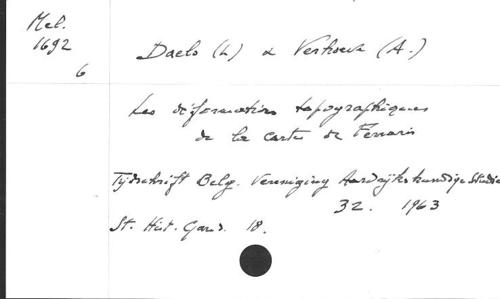 Mel.
1692
6
Daels (L) & Verhoeve (A.)
Les déformations topographiques
de la carte de Ferraris
Tijdschrift Belg. Vereniging Aardrijkskundige Studies
32. 1963
St. Hist. Gand. 18.